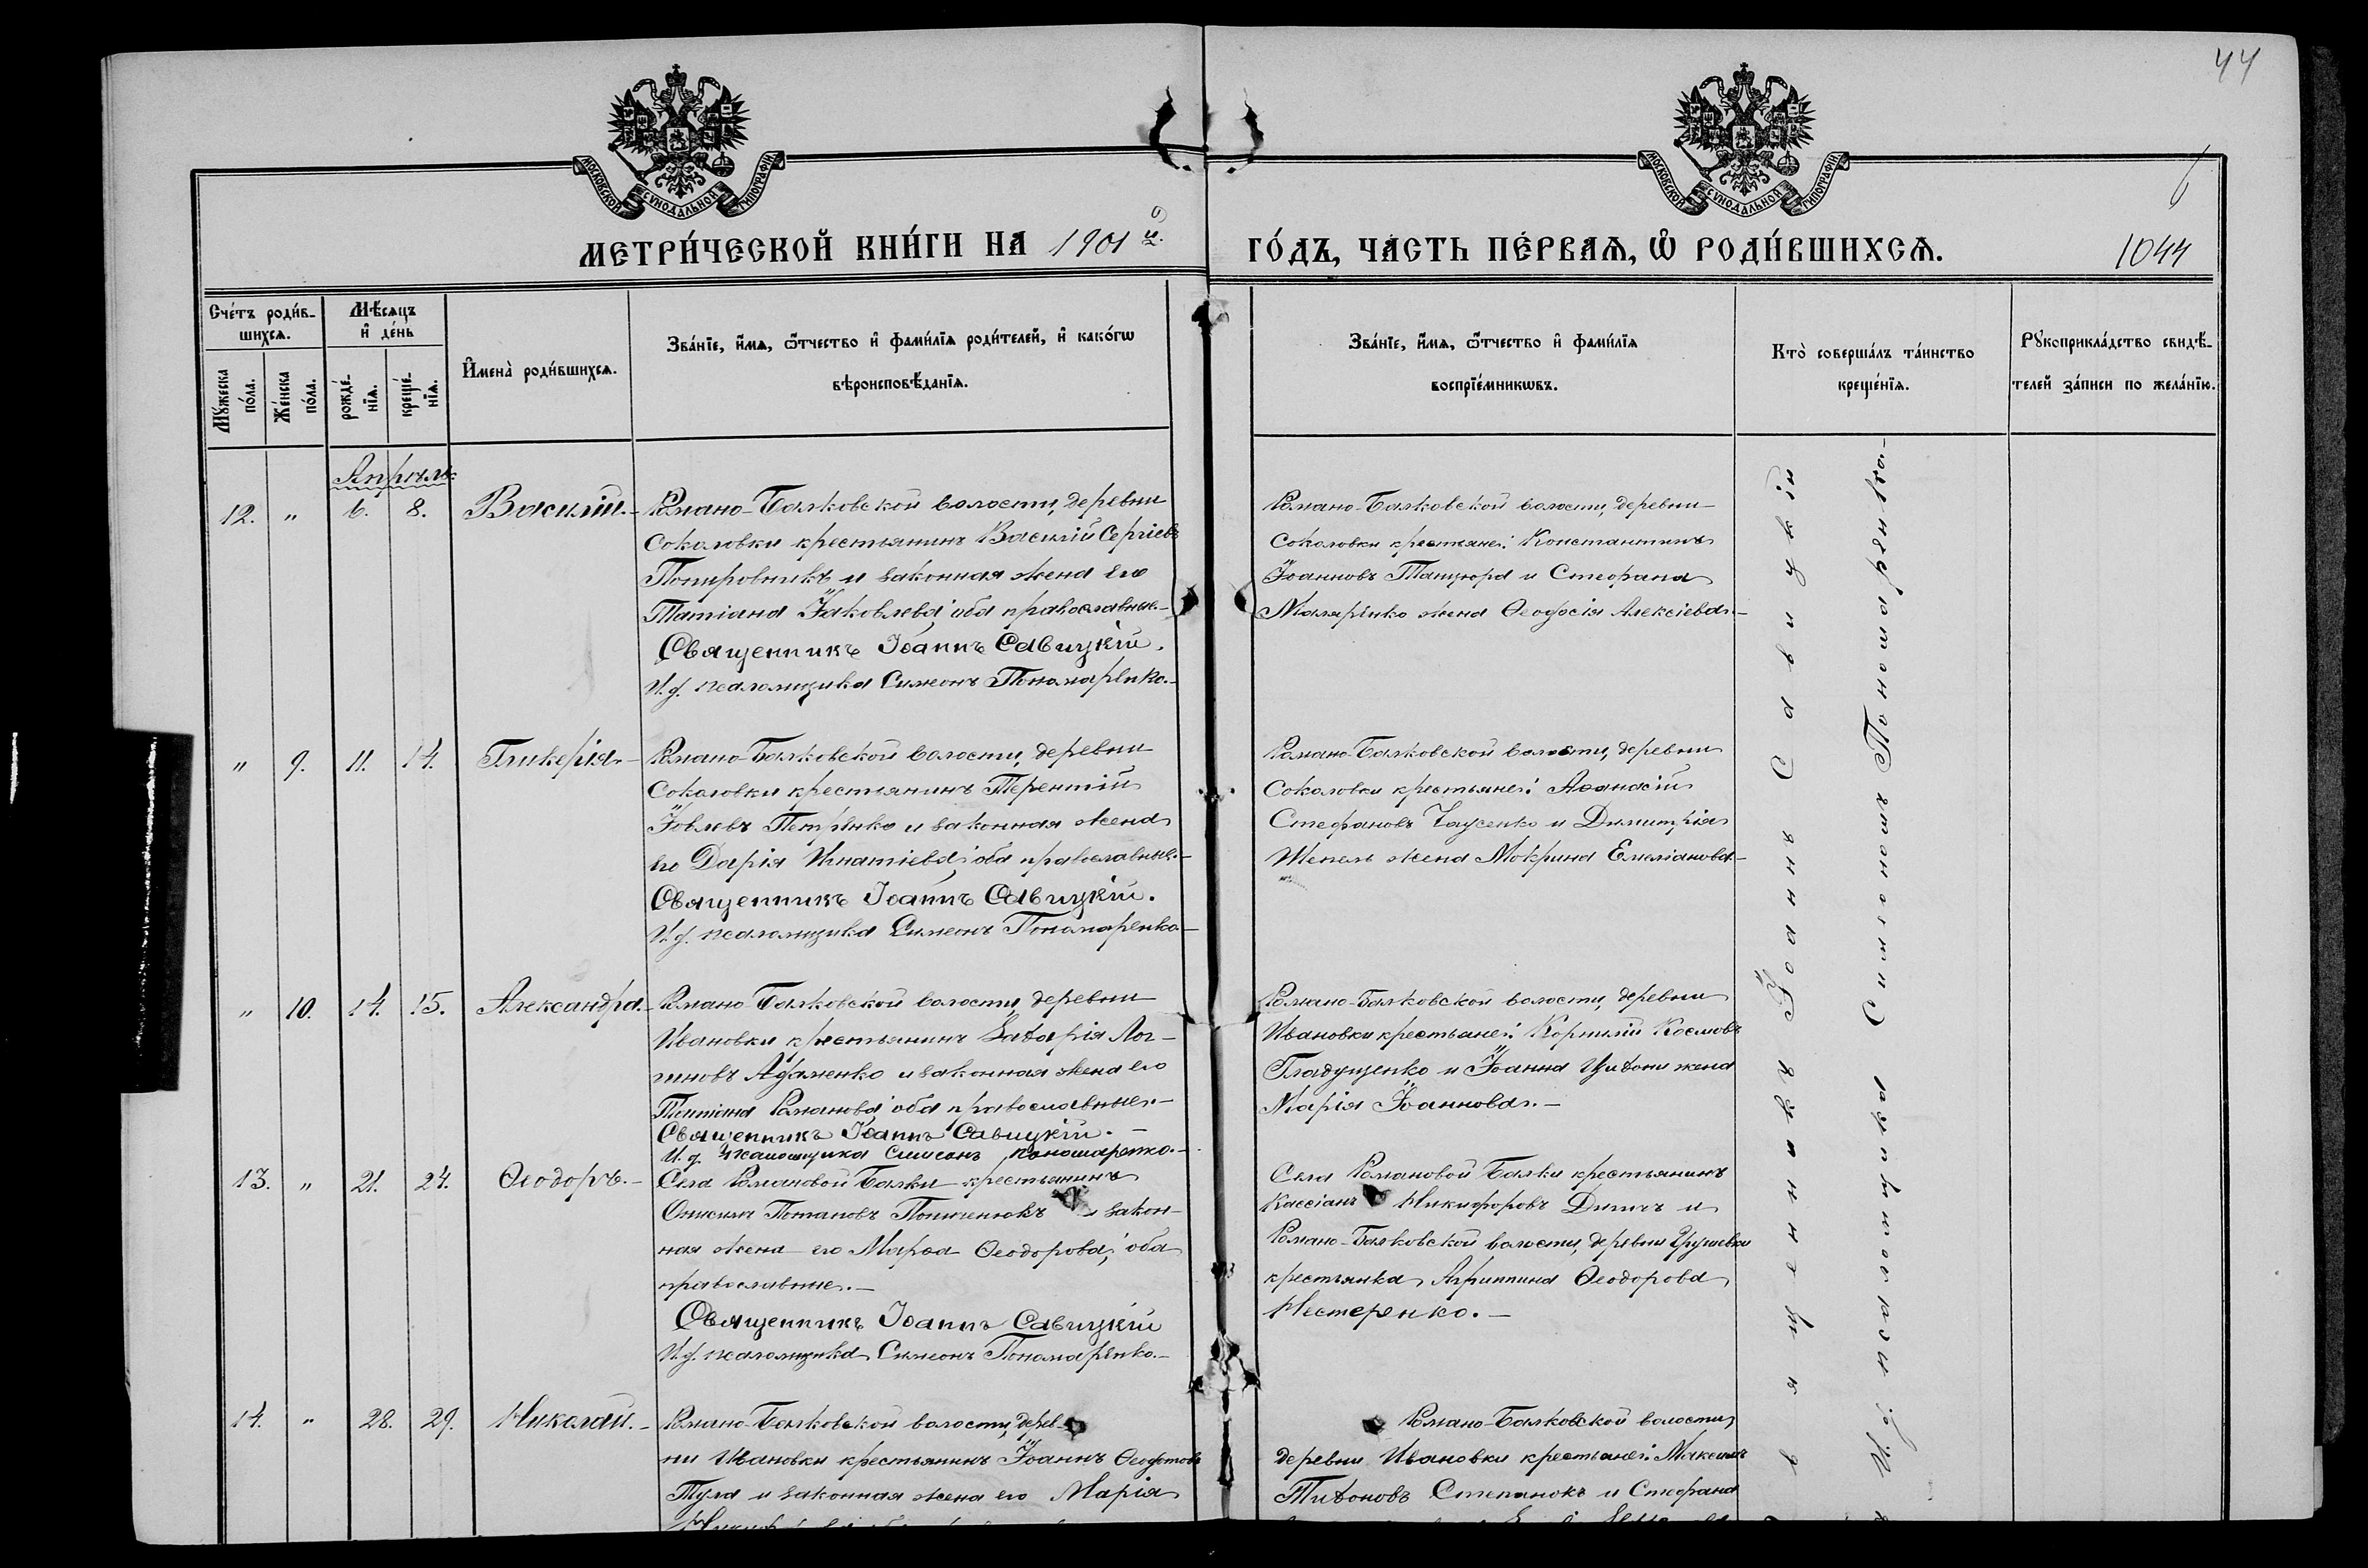 44
МОСКОВСКОЙ СѴНОДАЛЬНОЙ ТИПОГРАФІИ.
МОСКОВСКОЙ СѴНОДАЛЬНОЙ ТИПОГРАФІИ.
МЕТРИ́ЧЕСКОЙ КНИ́ГИ НА 1901 й
ГО́ДЪ, ЧА́СТЬ ПЕ́РВАѦ, Ѽ РОДИ́ВШИХСѦ.
1044
Сче́тъ роди́в-
шихсѧ.
Мꙋ́жеска по́ла.
Же́нска по́ла.
Мѣ́сѧцъ
и҆ де́нь
рожде́-нїѧ.
креще́-нїѧ.
И҆мена̀ роди́вшихсѧ.
Зва́нїе, и҆́мѧ, ѻ҆́тчество и҆ фами́лїѧ роди́телей, и҆ како́гѡ
вѣроисповѣ́данїѧ.
Зва́нїе, и҆́мѧ, ѻ҆́тчество и҆ фами́лїѧ
воспрїе́мникѡвъ.
Кто̀ соверша́лъ та́инство
креще́нїѧ.
Рꙋкоприкла́дство свидѣ́-
телей за́писи по жела́нїю.
Апрѣль:
12. " 6. 8. Василій.-
Романо-Балковской волости, деревни
Соколовки крестьянинъ Василій Сергіевъ
и законная жена его
Татіана Іаковлева; оба православные.-
Священникъ Іоаннъ Савицкій.
И. д. псаломщика Симеонъ Пономаренко.-
Романо-Балковской волости, деревни
Соколовки крестьяне: Константинъ
Іоанновъ и Стефана
Маляренко жена Ѳеодосія Алексіева.-
" 9. 11. 14. Гликерія.-
Романо-Балковской волости, деревни
Соколовки крестьянинъ Терентій
Іовлевъ Петренко и законная жена
его Дарія Игнатіева; оба православные.-
Священникъ Іоаннъ Савицкій.
И. д. псаломщика Симеонъ Пономаренко.-
Романо-Балковской волости, деревни
Соколовки крестьяне: Аѳанасій
Стефановъ Чаусенко и Димитрія
Шепель жена Мокрина Емеліанова-
" 10. 14. 15. Александра.-
Романо-Балковской волости, деревни
Ивановки крестьянинъ Захарія Лог-
гиновъ Адаменко и законная жена его
Татіана Романова; оба православные.-
Священникъ Іоаннъ Савицкій.-
И. д. псаломщика Симеонъ Пономаренко.-
Романо-Балковской волости, деревни
Ивановки крестьяне: Корнилій Космовъ
Гладущенко и Іоанна жена
Марія Іоаннова.-
13. " 21. 24. Ѳеодоръ.-
Села Романовой Балки крестьянинъ
Онисимъ Потаповъ и закон-
ная жена его Марѳа Ѳеодорова; оба
православные.-
Священникъ Іоаннъ Савицкій
И. д. псаломщика Симеонъ Пономаренко.-
Села Романовой Балки крестьянинъ
Кассіанъ Никифоровъ и
Романо-Балковской волости, деревни
крестьянка Агриппина Ѳеодорова
Нестеренко.-
14. " 28. 29. Николай.-
Романо-Балковской волости, дерев-
ни Ивановки крестьянинъ Іоаннъ Ѳеодотовъ
Тула и законная жена его Марія
Романо-Балковской волости,
деревни Ивановки крестьяне: Максимъ
Тихоновъ Степанокъ и Стефана
Іоаннъ Савицкій
И. д. псаломщика Симеонъ Пономаренко-